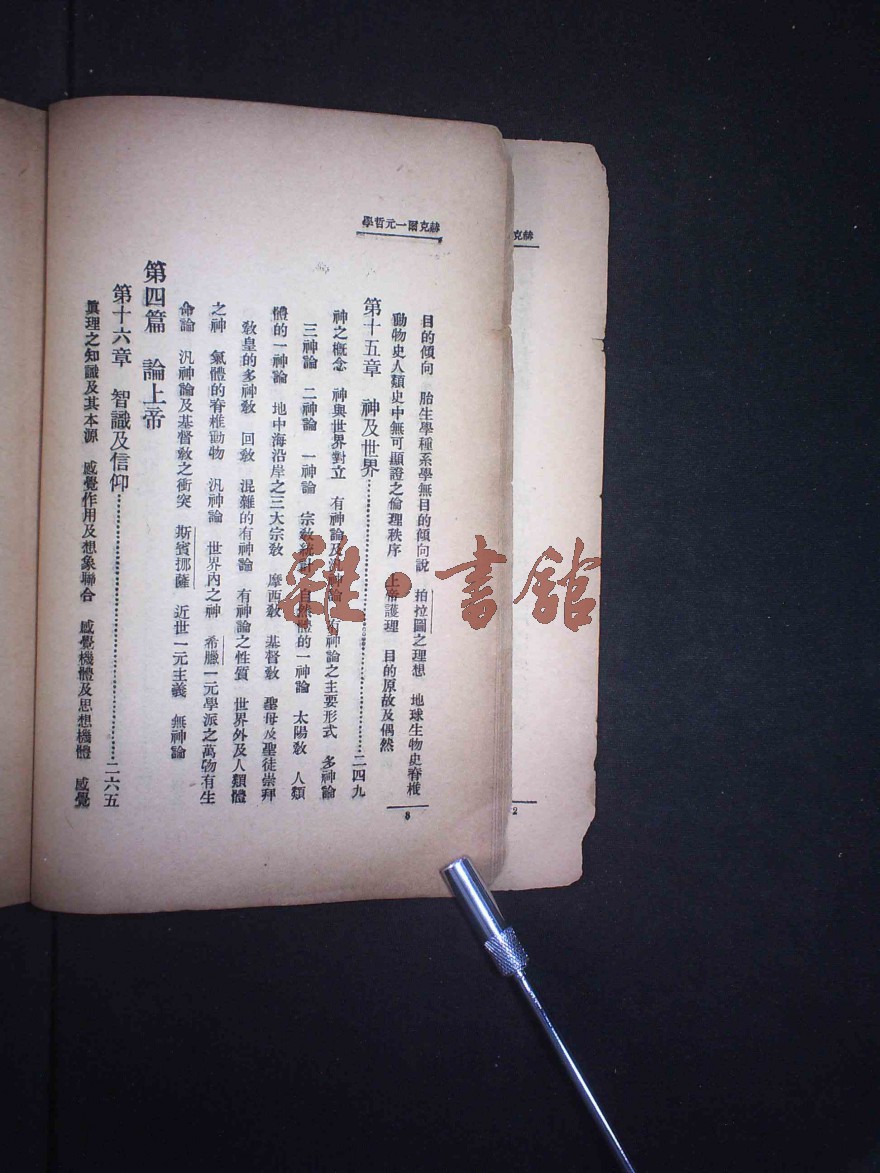 學哲元一爾克赫
目的傾向　胎生學種系學無目的傾向說　拍拉圖之理想　地球生物史脊椎
動物史人類史中無可顯證之倫理秩序　上帝護理　目的原故及偶然
第十五章　神及世界……二四九
神之概念　神與世界對立　有神論及汎神論　有神論之主要形式　多神論
三神論　二神論　一神論　宗教統計　自然體的一神論　太陽教　人類
體的一神論　地中海沿岸之三大宗教　摩西教　基督教　聖母及聖徒崇拜
教皇的多神教　回教　混雜的有神論　有神論之性質　世界外及人類體
之神　氣體的脊椎動物　汎神論　世界內之神　希臘一元學派之萬物有生
命論　汎神論及基督教之衝突　斯賓挪薩　近世一元主義　無神論
第四篇　論上帝
第十六章　智識及信仰……二六五
眞理之知識及其本源　感覺作用及想象聯合　感覺機體及思想機體　感覺
3
克赫
2
雜·書館